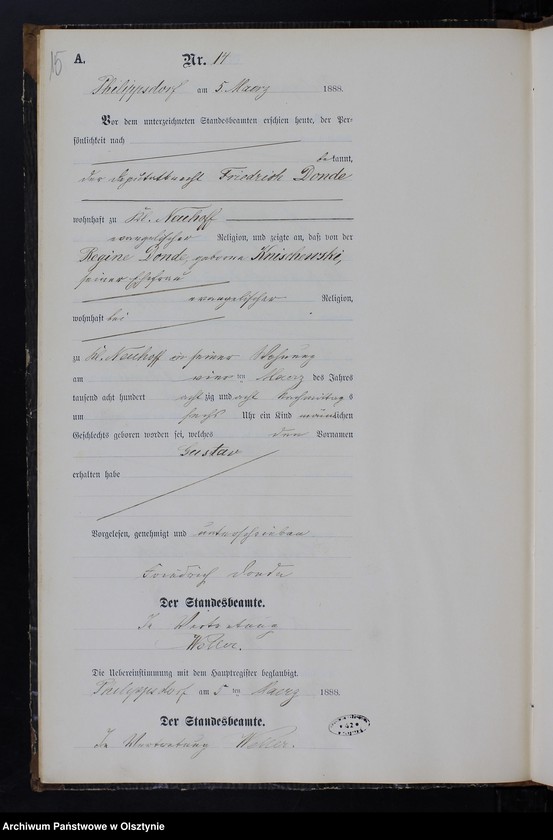 15
A.
Nr. 14
Philippsdorf am 5. Maerz 1888.
Vor dem unterzeichneten Standesbeamten erschien heute, der Per-
sönlichkeit nach
bekannt,
der Deputatknecht Friedrich Donde
wohnhaft zu Kl. Neuhoff
evangelischer Religion, und zeigte an, daß von der
Regine Donde, geborne Knischewski,
seiner Ehefrau
evangelischer Religion,
wohnhaft bei
zu Kl. Neuhoff in seiner Wohnung
am vier ten Maerz des Jahres
tausend acht hundert acht zig und acht Nachmittags
um sechs Uhr ein Kind männlichen
Geschlechts geboren worden sei, welches den Vornamen
Gustav
erhalten habe
Vorgelesen, genehmigt und unterschrieben
Friedrich Donde
Der Standesbeamte.
In Vertretung
Weller.
Die Uebereinstimmung mit dem Hauptregister beglaubigt.
Philippsdorf am 5 ten Maerz 1888.
Der Standesbeamte.
In Vertretung Weller.
Archiwum Państwowe w Olsztynie